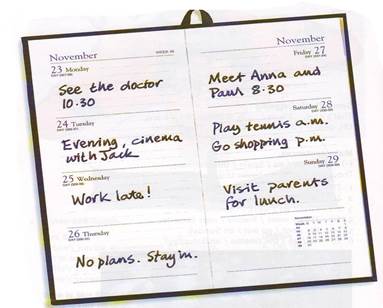 November
23 Monday
See the doctor
10.30
24 Tuesday
Evening, cinema
with Jack
25 Wednesday
Work late!
26 Thursday
No plans. Stay in.
Friday 27
Meet Anna and
Paul 8.30
Saturday 28
Play tennis a.m.
Go shopping p.m.
Sunday 29
Visit parents
for lunch.